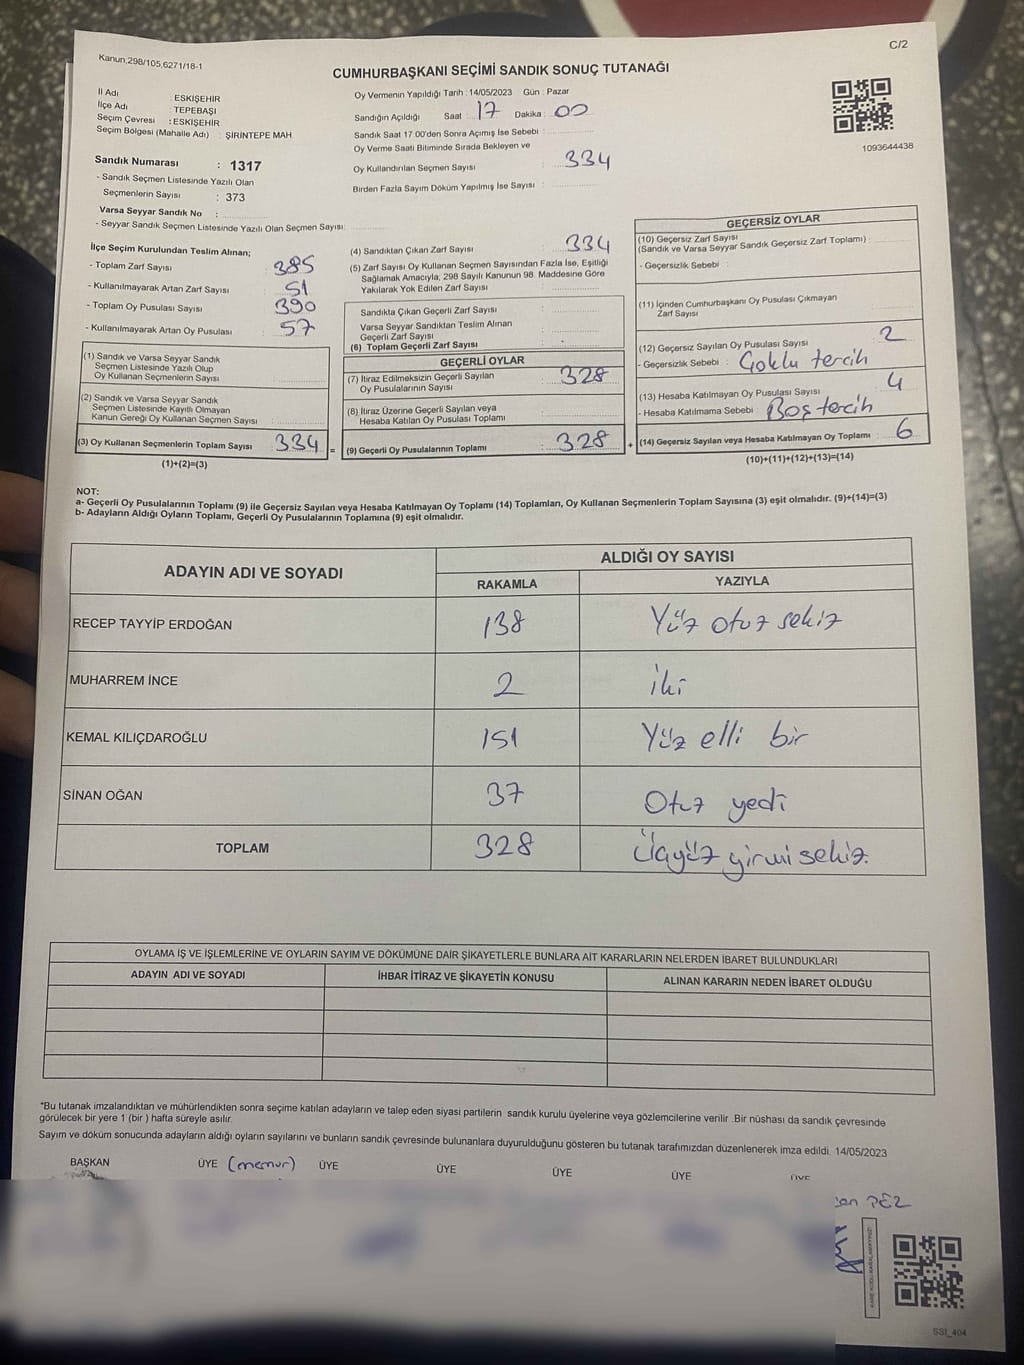 C/2
Kanun,298/105,6271/18-1
CUMHURBAŞKANI SEÇİMİ SANDIK SONUÇ TUTANAĞI
İl Adı : ESKİŞEHİR
İlçe Adı : TEPEBAŞI
Seçim Çevresi : ESKİŞEHİR
Seçim Bölgesi (Mahalle Adı) : ŞİRİNTEPE MAH
Sandık Numarası : 1317
- Sandık Seçmen Listesinde Yazılı Olan
Seçmenlerin Sayısı : 373
Varsa Seyyar Sandık No :
- Seyyar Sandık Seçmen Listesinde Yazılı Olan Seçmen Sayısı:
Oy Vermenin Yapıldığı Tarih : 14/05/2023 Gün : Pazar
Sandığın Açıldığı Saat : 17 Dakika : 00
Sandık Saat 17:00'den Sonra Açımış İse Sebebi :
Oy Verme Saati Bitiminde Sırada Bekleyen ve
Oy Kullandırılan Seçmen Sayısı : 334
Birden Fazla Sayım Döküm Yapılmış İse Sayısı :
1093644438
İlçe Seçim Kurulundan Teslim Alınan;
- Toplam Zarf Sayısı : 385
- Kullanılmayarak Artan Zarf Sayısı : 51
- Toplam Oy Pusulası Sayısı : 390
- Kullanılmayarak Artan Oy Pusulası : 57
(1) Sandık ve Varsa Seyyar Sandık
Seçmen Listesinde Yazılı Olup
Oy Kullanan Seçmenlerin Sayısı :
(2) Sandık ve Varsa Seyyar Sandık
Seçmen Listesinde Kayıtlı Olmayan
Kanun Gereği Oy Kullanan Seçmen Sayısı :
(3) Oy Kullanan Seçmenlerin Toplam Sayısı : 334 =
(1)+(2)=(3)
(4) Sandıktan Çıkan Zarf Sayısı : 334
(5) Zarf Sayısı Oy Kullanan Seçmen Sayısından Fazla İse, Eşitliği
Sağlamak Amacıyla, 298 Sayılı Kanunun 98. Maddesine Göre
Yakılarak Yok Edilen Zarf Sayısı :
Sandıkta Çıkan Geçerli Zarf Sayısı :
Varsa Seyyar Sandıktan Teslim Alınan
Geçerli Zarf Sayısı :
(6) Toplam Geçerli Zarf Sayısı :
GEÇERLİ OYLAR
(7) İtiraz Edilmeksizin Geçerli Sayılan
Oy Pusulalarının Sayısı : 328
(8) İtiraz Üzerine Geçerli Sayılan veya
Hesaba Katılan Oy Pusulası Toplamı :
(9) Geçerli Oy Pusulalarının Toplamı : 328 +
GEÇERSİZ OYLAR
(10) Geçersiz Zarf Sayısı
(Sandık ve Varsa Seyyar Sandık Geçersiz Zarf Toplamı) :
- Geçersizlik Sebebi :
(11) İçinden Cumhurbaşkanı Oy Pusulası Çıkmayan
Zarf Sayısı :
(12) Geçersiz Sayılan Oy Pusulası Sayısı : 2
- Geçersizlik Sebebi : Çoklu tercih
(13) Hesaba Katılmayan Oy Pusulası Sayısı : 4
- Hesaba Katılmama Sebebi : Boş tercih
(14) Geçersiz Sayılan veya Hesaba Katılmayan Oy Toplamı : 6
(10)+(11)+(12)+(13)=(14)
NOT:
a- Geçerli Oy Pusulasının Toplamı (9) ile Geçersiz Sayılan veya Hesaba Katılmayan Oy Toplamı (14) Toplamları, Oy Kullanan Seçmenlerin Toplam Sayısına (3) eşit olmalıdır. (9)+(14)=(3)
b- Adayların Aldığı Oyların Toplamı, Geçerli Oy Pusulalarının Toplamına (9) eşit olmalıdır.
ADAYIN ADI VE SOYADI
ALDIĞI OY SAYISI
RAKAMLA YAZIYLA
RECEP TAYYİP ERDOĞAN 138 Yüz otuz sekiz
MUHARREM İNCE 2 iki
KEMAL KILIÇDAROĞLU 151 Yüz elli bir
SİNAN OĞAN 37 Otuz yedi
TOPLAM 328 Üçyüz yirmi sekiz.
OYLAMA İŞ VE İŞLEMLERİNE VE OYLARIN SAYIM VE DÖKÜMÜNE DAİR ŞİKAYETLERLE BUNLARA AİT KARARLARIN NELERDEN İBARET BULUNDUKLARI
ADAYIN ADI VE SOYADI İHBAR İTİRAZ VE ŞİKAYETİN KONUSU ALINAN KARARIN NEDEN İBARET OLDUĞU
*Bu tutanak imzalandıktan ve mühürlendikten sonra seçime katılan adayların ve talep eden siyasi partilerin sandık kurulu üyelerine veya gözlemcilerine verilir .Bir nüshası da sandık çevresinde
görülecek bir yere 1 (bir ) hafta süreyle asılır.
Sayım ve döküm sonucunda adayların aldığı oyların sayılarını ve bunların sandık çevresinde bulunanlara duyurulduğunu gösteren bu tutanak tarafımızdan düzenlenerek imza edildi. 14/05/2023
BAŞKAN ÜYE (memur) ÜYE ÜYE ÜYE ÜYE ÜYE
SSI_404